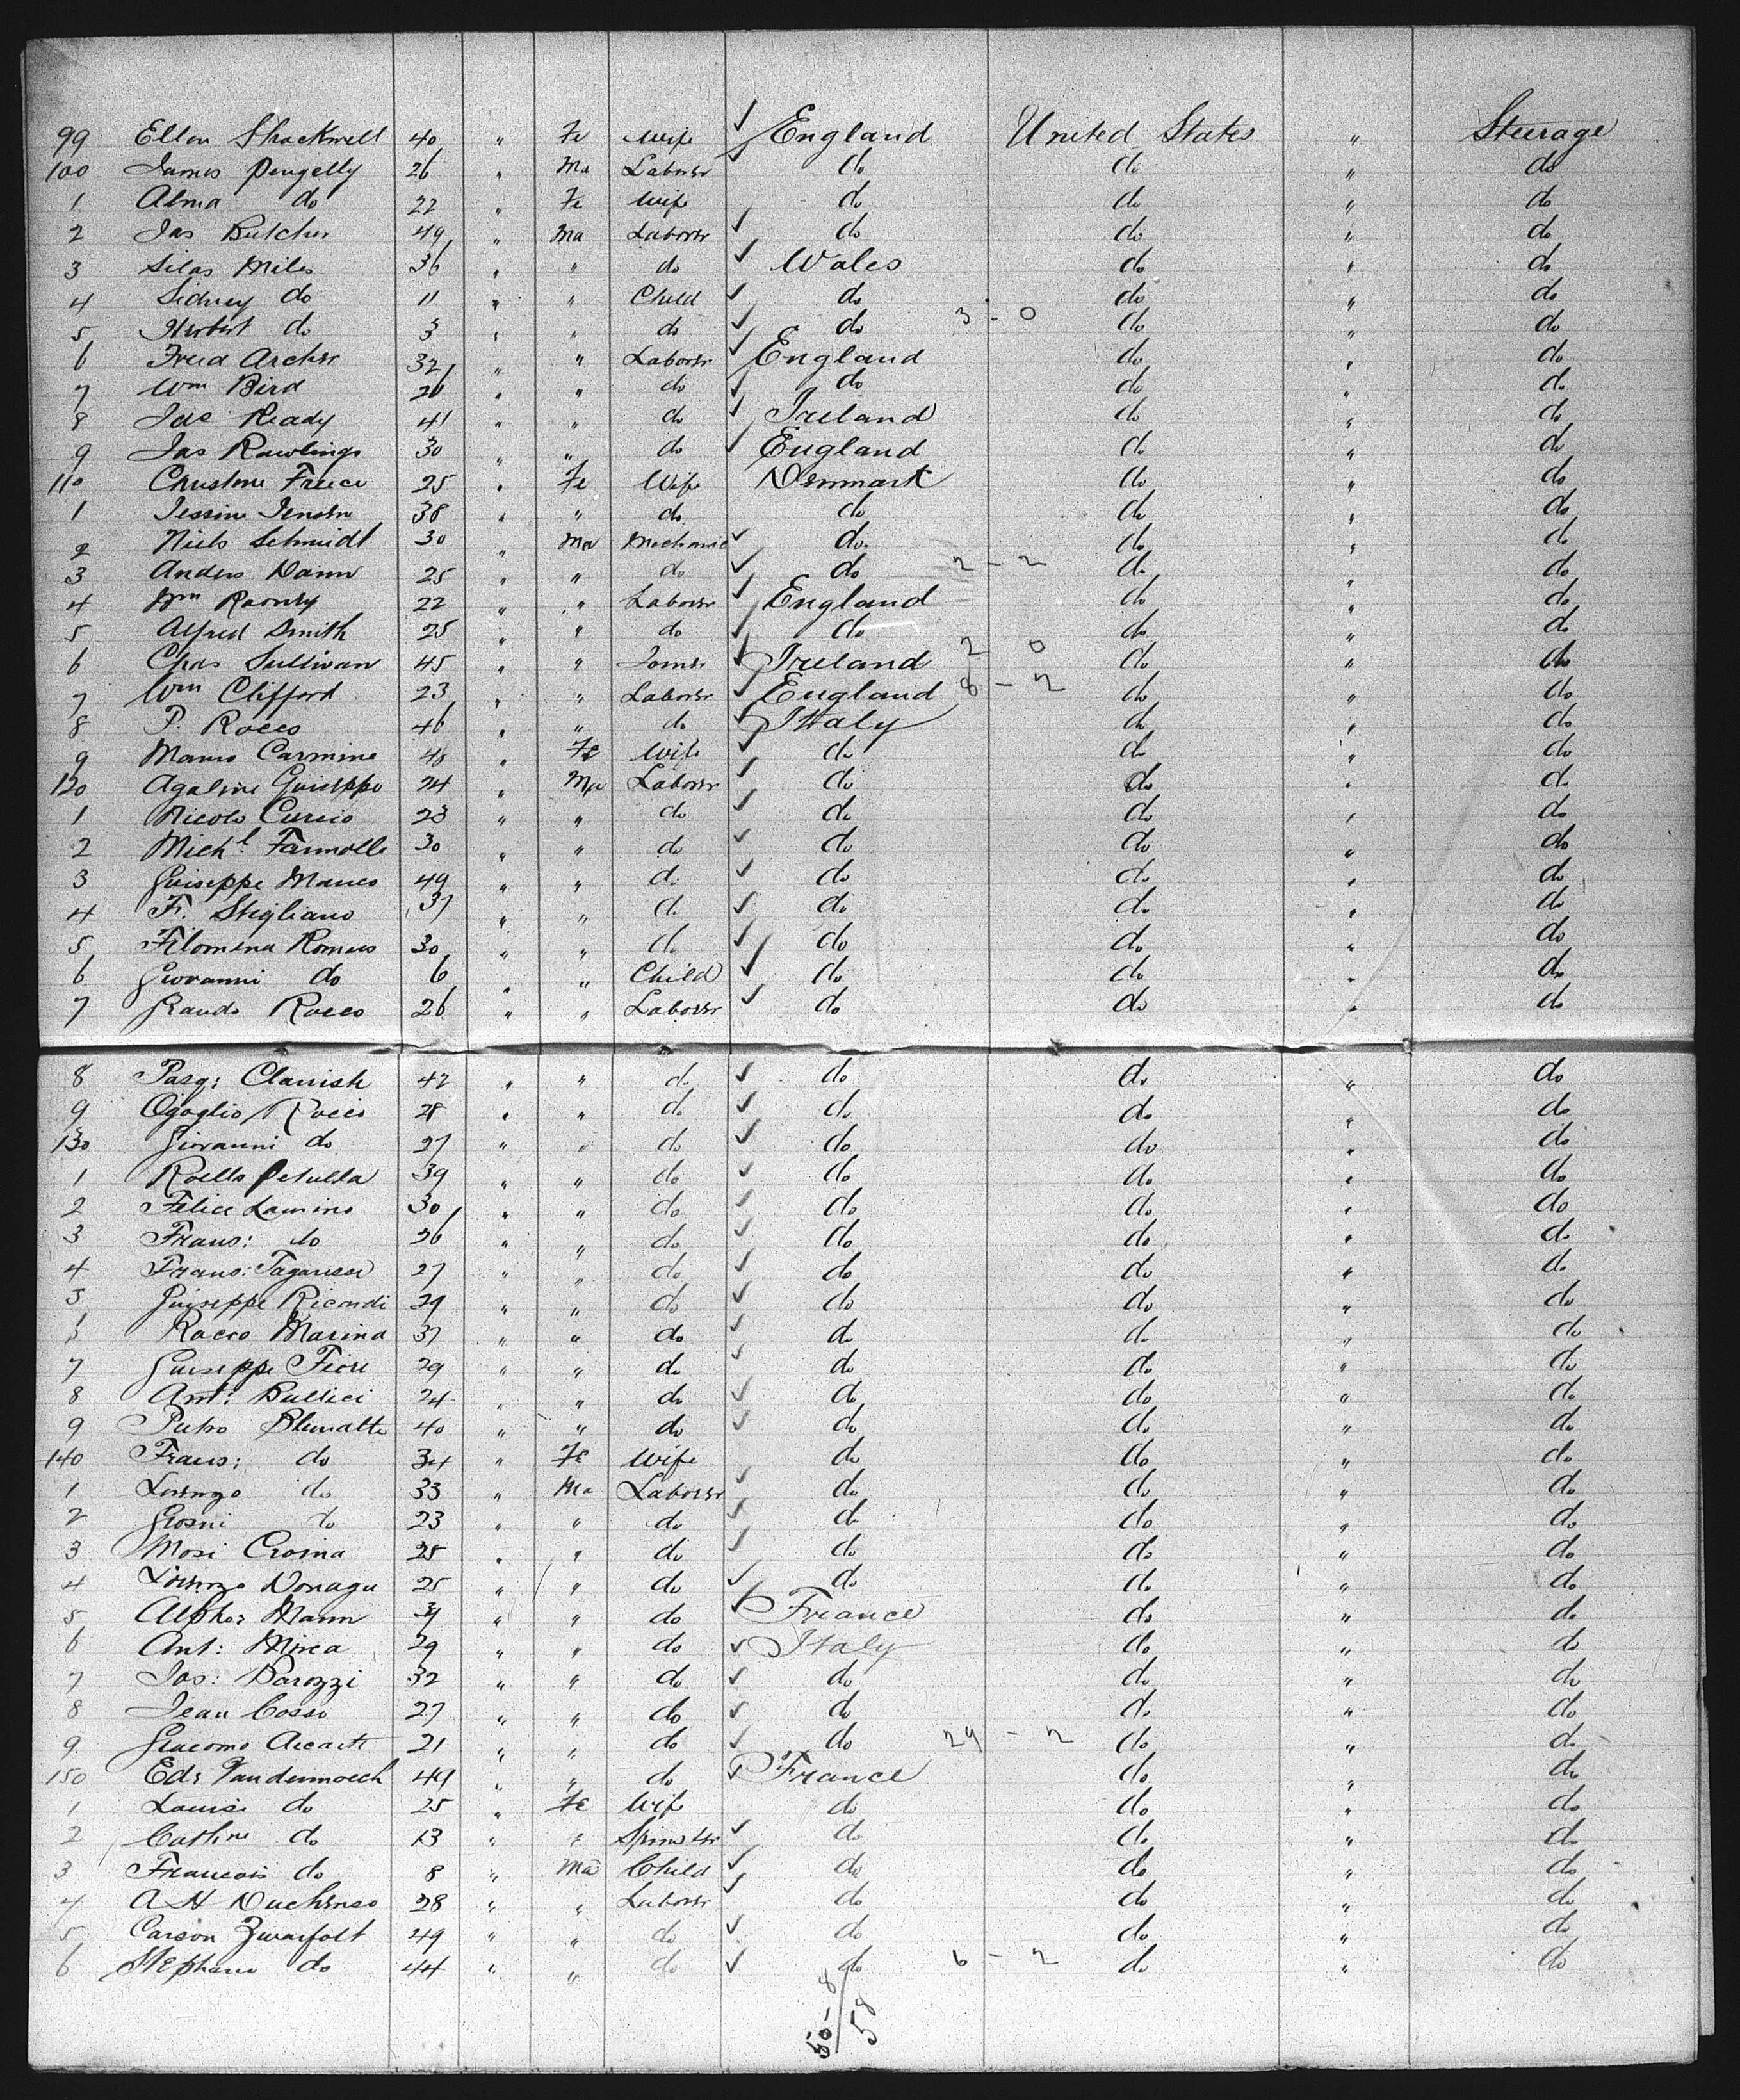 99 Ellen Shackwell 40 " Fe Wife ✓ England United States " Steerage
100 James Pengelly 26 " Ma Laborer ✓ do do " do
1 Alma do 22 " Fe Wife do do " do
2 Jas Butcher 49 " Ma Laborer ✓ do do " do
3 Silas Miles 36 " " do ✓ Wales do " do
4 Sidney do 11 " " Child ✓ do do " do
5 Herbert do 3 " " do ✓ do 3 - 0 do " do
6 Fred Archer 32 " " Laborer ✓ England do " do
7 Wm Bird 26 " " do ✓ do do " do
8 Jas Ready 41 " " do ✓ Ireland do " do
9 Jas Rawlings 30 " " do ✓ England do " do
110 25 " Fe Wife Denmark do " do
1 Jessine Jensen 38 " " do do do " do
2 Niels Schmidt 30 " Ma Mechanic ✓ do do " do
3 Anders 25 " " do ✓ do 2 - 2 do " do
4 Wm 22 " " Laborer ✓ England do " do
5 Alfred Smith 25 " " do ✓ do do " do
6 Chas Sullivan 45 " " ✓ Ireland 2 0 do " do
7 Wm Clifford 23 " " Laborer ✓ England 8 - 2 do " do
8 P. Rocco 46 " " do ✓ Italy do " do
9 Carmine 48 " Fe Wife ✓ do do " do
120 Guiseppe 24 " Ma Laborer ✓ do do " do
1 Nicolo Curcio 23 " " do ✓ do do " do
2 Michl. 30 " " do ✓ do do " do
3 Guiseppe Manco 49 " " do ✓ do do " do
4 F. Stigliano 37 " " do ✓ do do " do
5 Filomena Romeo 30 " " do ✓ do do " do
6 Giovanni do 6 " " Child ✓ do do " do
7 Rocco 26 " " Laborer ✓ do do " do
8 Pasq: 42 " " do ✓ do do " do
9 Rocco 28 " " do ✓ do do " do
130 Giovanni do 27 " " do ✓ do do " do
1 Petulla 39 " " do ✓ do do " do
2 Felice 30 " " do ✓ do do " do
3 Frans: do 26 " " do ✓ do do " do
4 Frans: 27 " " do ✓ do do " do
5 Guiseppe Ricardi 29 " " do ✓ do do " do
Rocco Marina 37 " " do ✓ do do " do
7 Guiseppe Fiore 29 " " do ✓ do do " do
8 Ant: 24 " " do ✓ do do " do
9 Pietro 40 " " do ✓ do do " do
140 Frans: do 34 " Fe Wife do do " do
1 Lorenzo do 33 " Ma Laborer ✓ do do " do
2 do 23 " " do ✓ do do " do
3 25 " " do ✓ do do " do
4 Lorenzo 25 " " do ✓ do do " do
5 Alphos " " do ✓ France do " do
6 Ant: 29 " " do ✓ Italy do " do
7 Jos: Barozzi 32 " " do ✓ do do " do
8 Jean Cosso 27 " " do ✓ do do " do
9 Giacomo 21 " " do ✓ do 29 - 2 do " do
150 49 " " do ✓ France do " do
1 Louise do 25 " Fe Wife do do " do
2 Cathne do 13 " " Spinster ✓ do do " do
3 Francois do 8 " Ma Child ✓ do do " do
4 A H 28 " " Laborer ✓ do do " do
5 Carson 49 " " do ✓ do do " do
6 Stephane do 44 " " do ✓ do 6 - 2 do " do
50 - 8
58